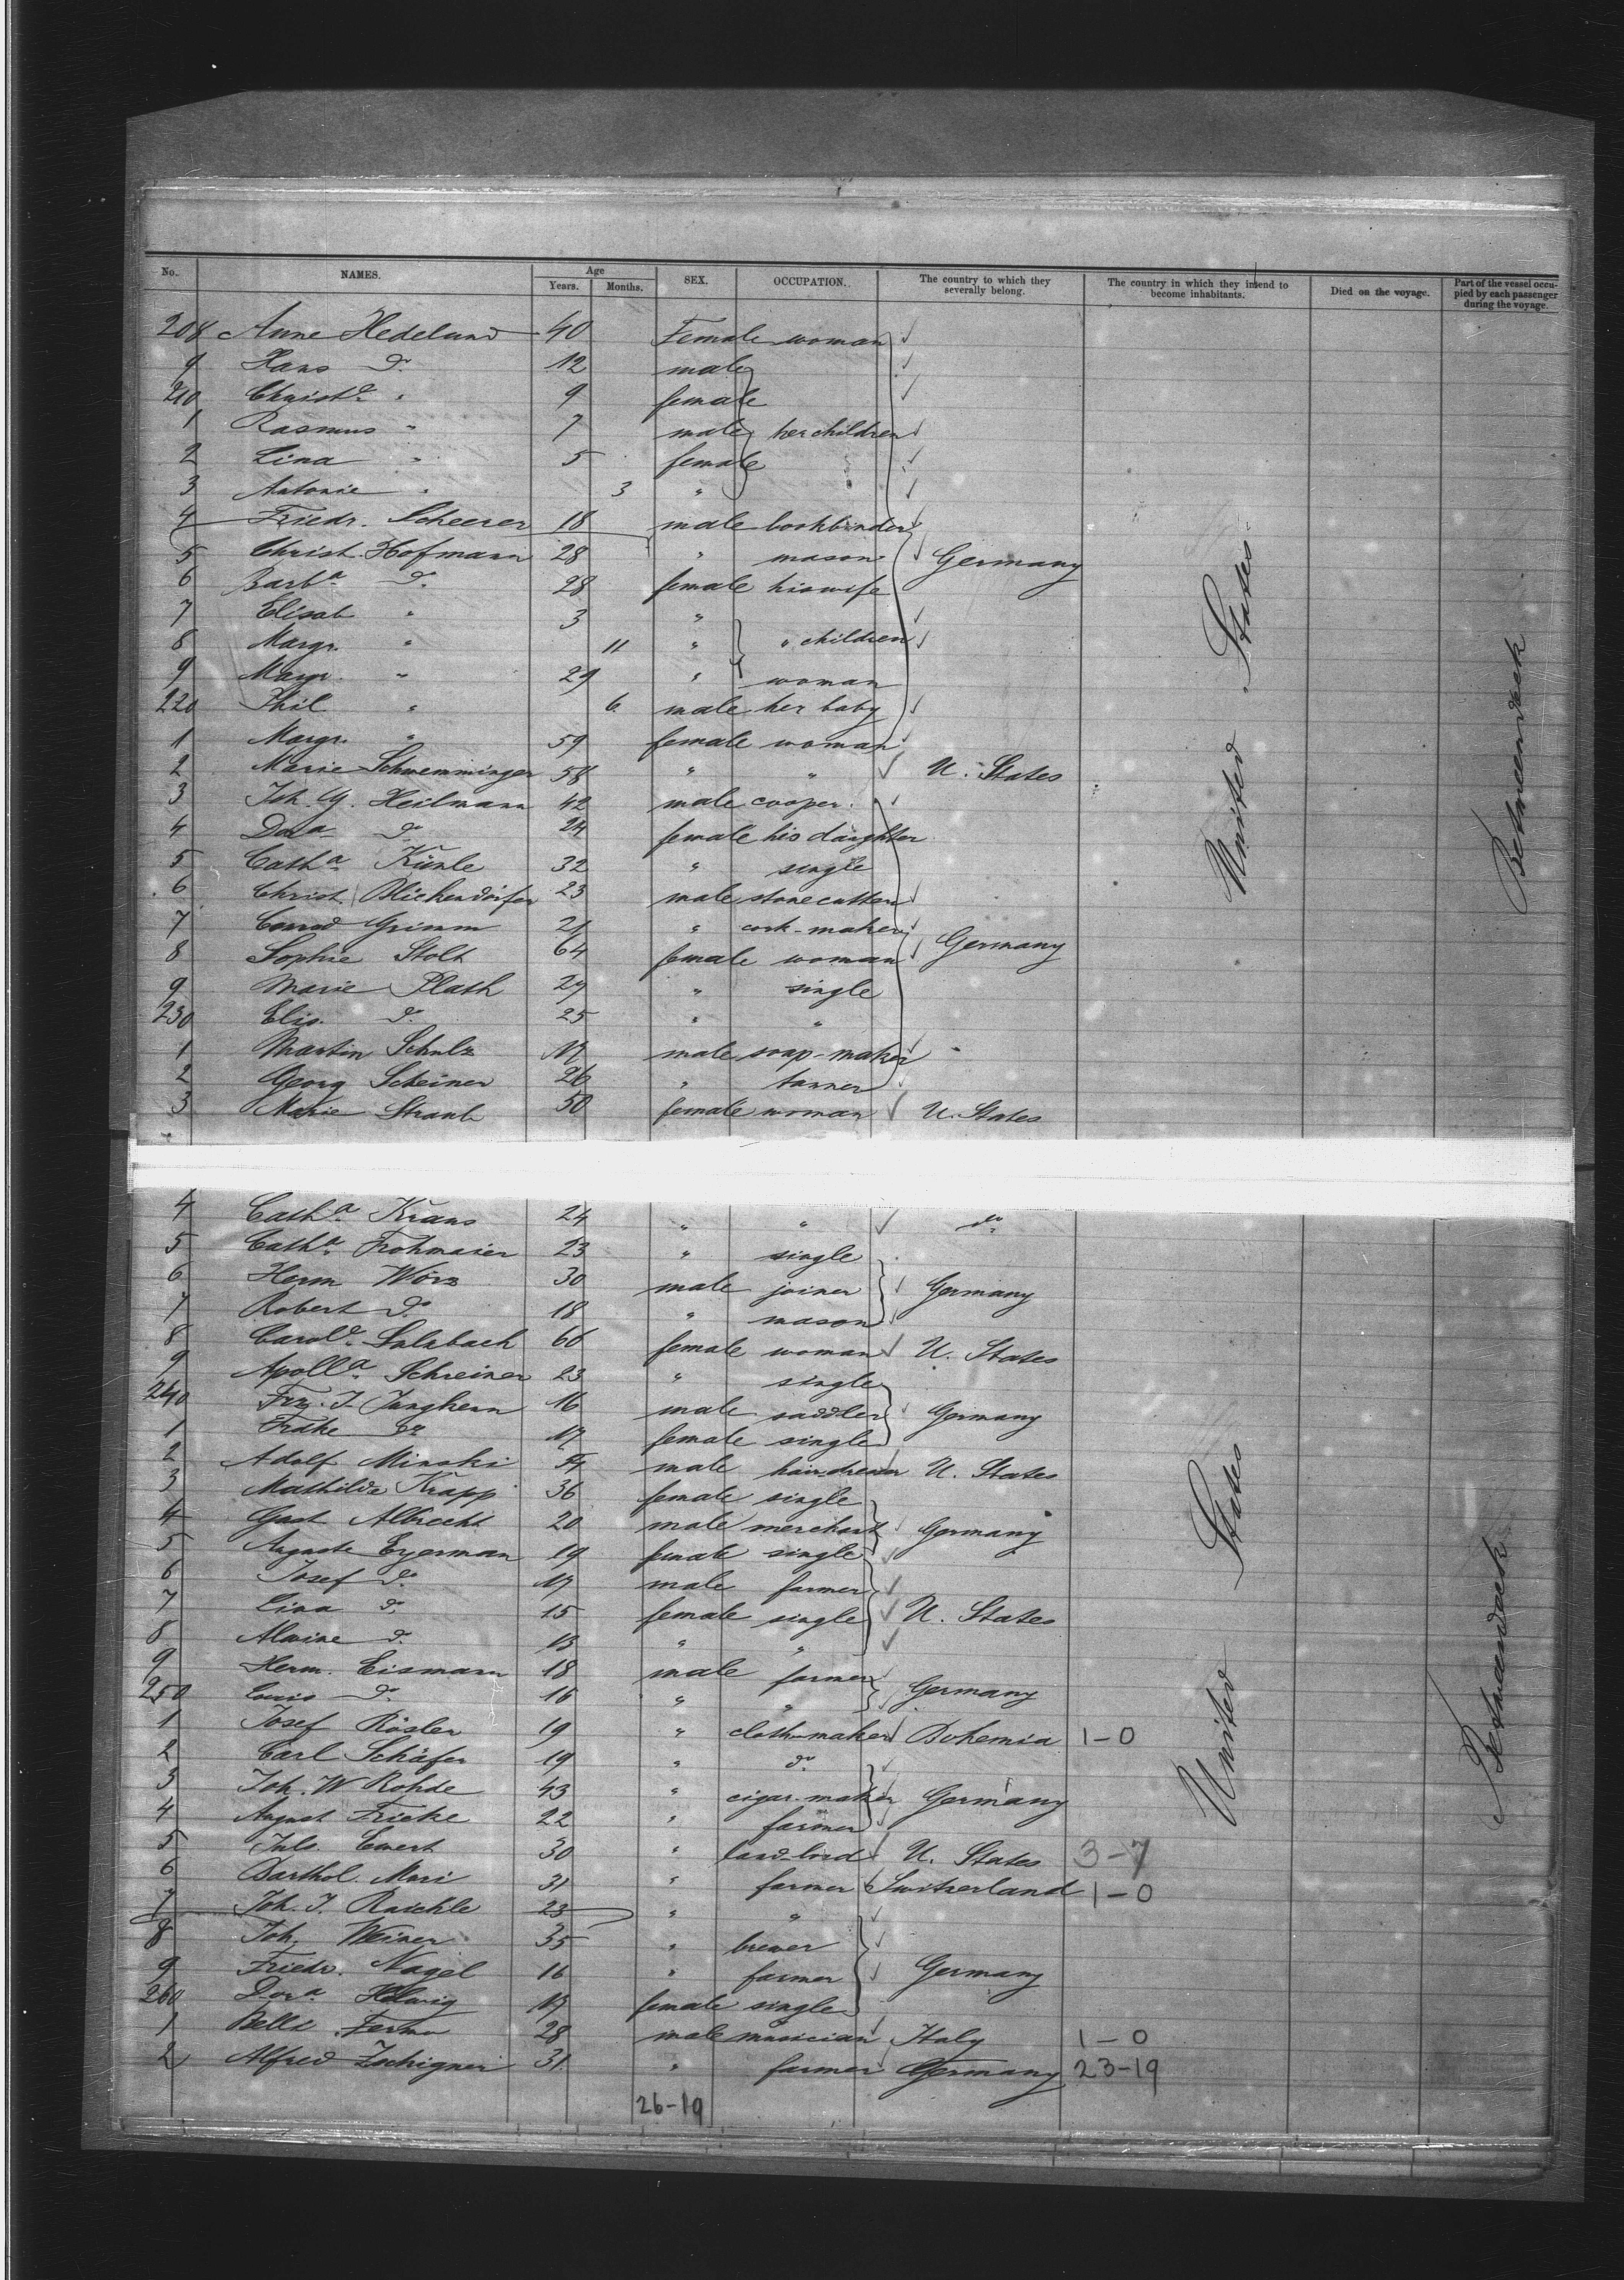 No. NAMES. Age Years. Months. SEX. OCCUPATION. The country to which they severally belong. The country in which they intend to become inhabitants. Died on the voyage. Part of the vessel occupied by each passenger during the voyage.
208 Anne Hedelund 40 Female woman
9 Hans do 12 male
210 Christe " 9 female
1 Rasmus " 7 male her children
2 Lina " 5 female
3 Antonie " 3 "
4 Friedr. Scheerer 18 male bookbinder
5 Christ. Hofmann 28 " mason Germany
6 Barba do 28 female his wife
7 Elisab " 3 "
8 Margr. " 11 " " children
9 Margr. " 29 " woman
220 Phil " 6 male her baby
1 Margr. " 59 female woman
2 Marie Schwemminger 58 " " U. States
3 Joh. G. Heilmann 42 male cooper
4 Dora do 24 female his daughter
5 Catha Künle 32 " single
6 Christ. Blickendörfer 23 male stonecutter
7 Conrad Grimm 21 " cork-maker
8 Sophie Stolt 64 female woman Germany
9 Marie Plath 29 " single
230 Elis. do 25 " "
1 Martin Schulz 17 male soap-maker
2 Georg Scheiner 26 " tanner
3 Marie Straub 50 female woman U. States
United States
Betweendeck
4 Catha Kraus 24 " " do
5 Catha Frohmaier 23 " single
6 Herm Wörz 30 male joiner Germany
7 Robert do 18 " mason
8 Carole Salzbach 66 female woman U. States
9 Apolla Schreiner 23 " single
240 Frz. J. Junghenn 16 male saddler Germany
1 do 17 female single
2 Adolf Minski male hairdresser U. States
3 Mathilde Krapp 36 female single
4 Gust Albrecht 20 male merchant Germany
5 Auguste Engerman 19 female single
6 Josef do 17 male farmer
7 Lina do 15 female single U. States
8 Alwine do 13 " "
9 Herm. Eismann 18 male farmer
250 Louis do 16 " " Germany
1 Josef Rösler 19 " cloth-maker Bohemia 1-0
2 Carl Schäfer 19 " do
3 Joh. W Rohde 43 " cigar-maker Germany
4 August Fricke 22 " farmer
5 Juls. Ewert 30 " land-lord U. States 3-7
6 Barthol. Mori 31 " farmer Switzerland 1-0
7 Joh. J. Raichle 23 " "
8 Joh. Weiner 35 " brewer
9 Friedr. Nagel 16 " farmer Germany
260 Dora Helwig 17 female single
1 Bella Ferma 28 male musician Italy 1-0
2 Alfred 31 " farmer Germany 23-19
26-19
United States
Betweendeck